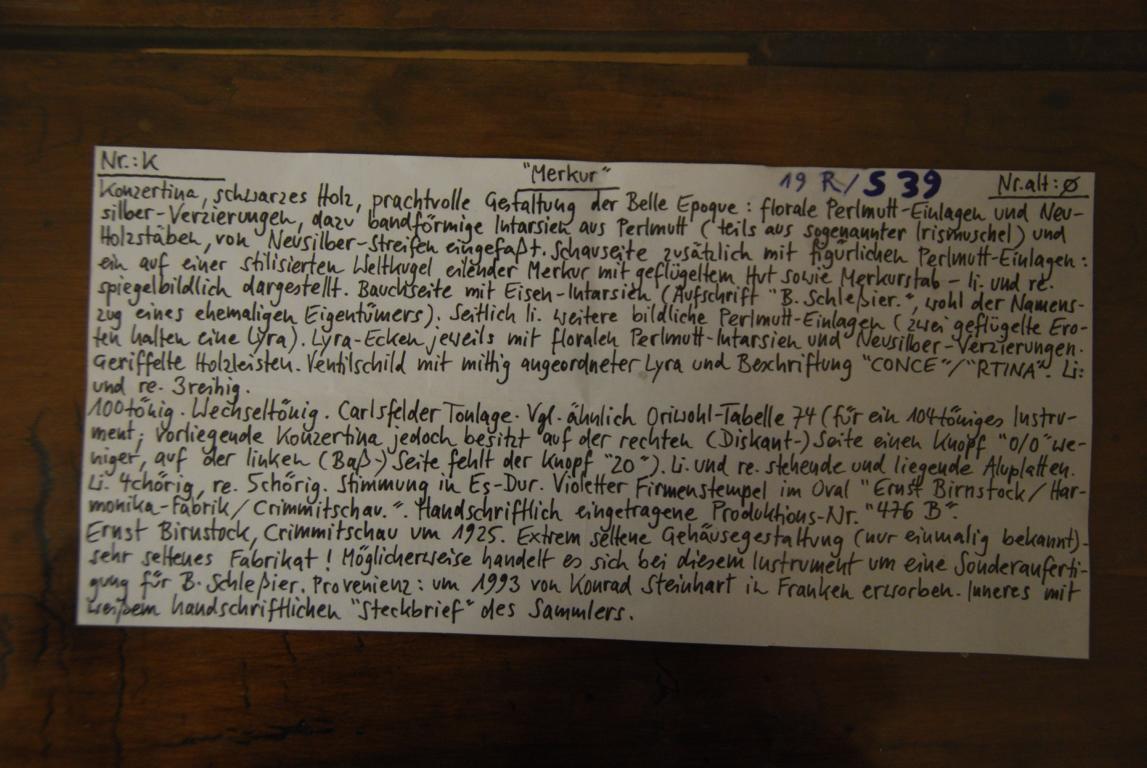 Nr.: K "Merkur" 19 R/S 39 Nr. alt: ø
Konzertina, schwarzes Holz, prachtvolle Gestaltung der Belle Epoque: florale Perlmutt-Einlagen und Neu-
silber-Verzierungen, dazu bandförmige Intarsien aus Perlmutt (teils aus sogenannter Irismuschel) und
Holzstäben, von Neusilber-Streifen eingefaßt. Schauseite zusätzlich mit figürlichen Perlmutt-Einlagen:
ein auf einer stilisierten Weltkugel eilender Merkur mit geflügeltem Hut sowie Merkurstab - li. und re.
spiegelbildlich dargestellt. Bauchseite mit Eisen-Intarsien (Aufschrift "B. Schleßier.", wohl der Namens-
zug eines ehemaligen Eigentümers). Seitlich li. weitere bildliche Perlmutt-Einlagen (zwei geflügelte Ero-
ten halten eine Lyra). Lyra-Ecken jeweils mit floralen Perlmutt-Intarsien und Neusilber-Verzierungen.
Geriffelte Holzleisten. Ventilschild mit mittig angeordneter Lyra und Beschriftung "CONCE"/"RTINA". Li.
und re. 3reihig.
100tönig. Wechseltönig. Carlsfelder Tonlage. Vgl. ähnlich Oriwohl-Tabelle 74 (für ein 104töniges Instru-
ment; vorliegende Konzertina jedoch besitzt auf der rechten (Diskant-) Seite einen Knopf "0/0" we-
niger, auf der linken (Baß-) Seite fehlt der Knopf "20"). Li. und re. stehende und liegende Aluplatten.
Li. 4chörig, re. 5chörig. Stimmung in Es-Dur. Violetter Firmenstempel im Oval "Ernst Birnstock/Har-
monika-Fabrik/Crimmitschau.". Handschriftlich eingetragene Produktions-Nr. "476 B".
Ernst Birnstock, Crimmitschau um 1925. Extrem seltene Gehäusegestaltung (nur einmalig bekannt)-
sehr seltenes Fabrikat! Möglicherweise handelt es sich bei diesem Instrument um eine Sonderanferti-
gung für B. Schleßier. Provenienz: um 1993 von Konrad Steinhart in Franken erworben. Inneres mit
weißem handschriftlichen "Steckbrief" des Sammlers.